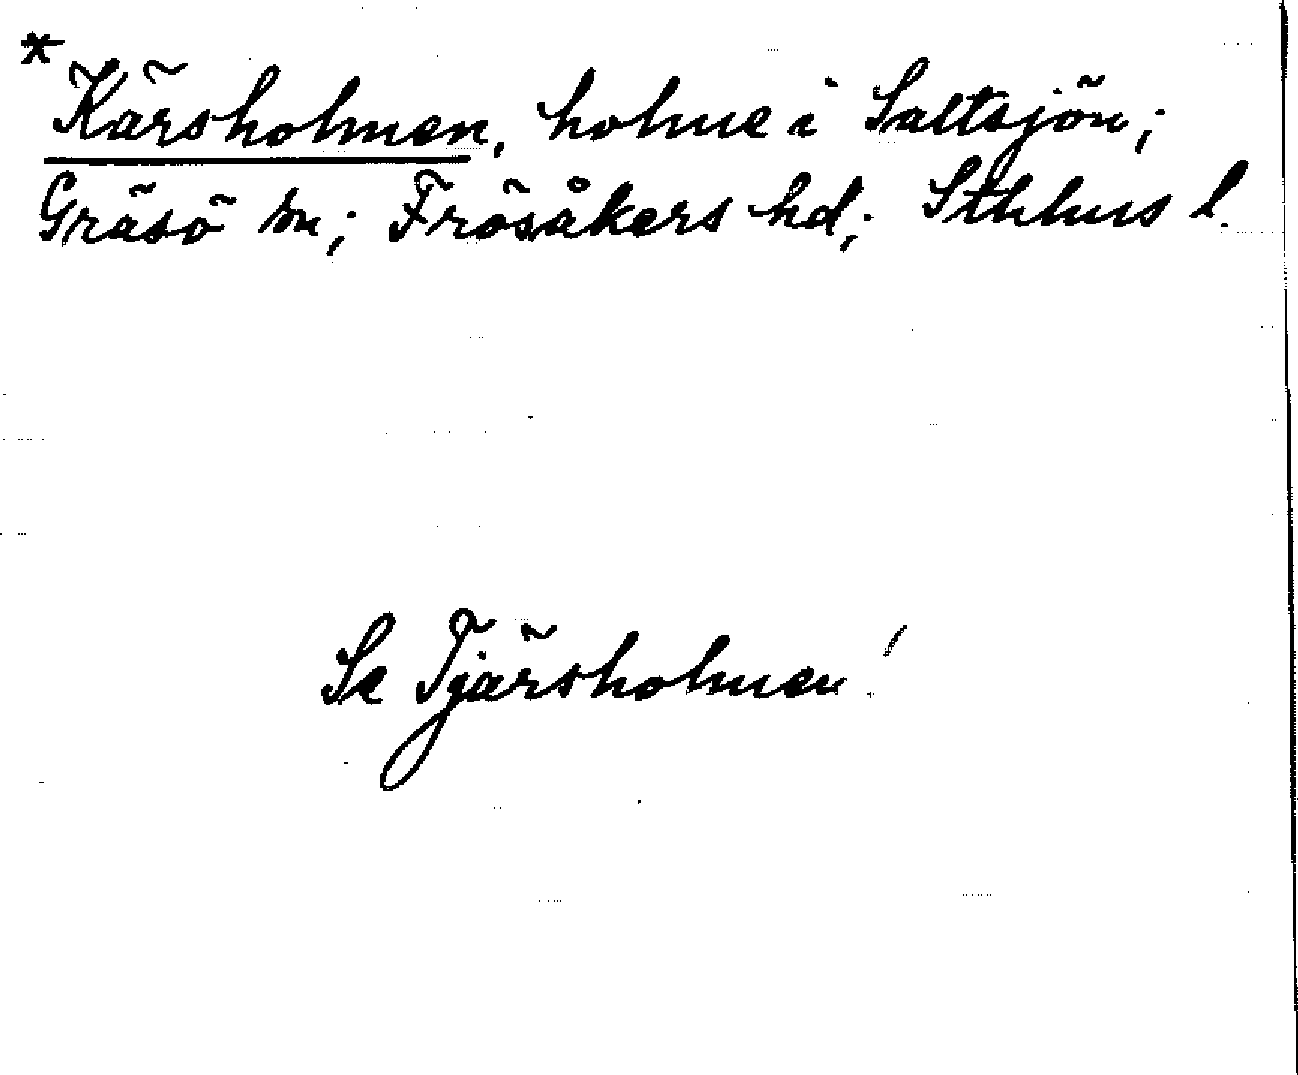 * Kärsholmen, holme i Saltsjön;
Gräsö sn; Frösåkers hd; Sthlms l.
Se Tjärsholmen!